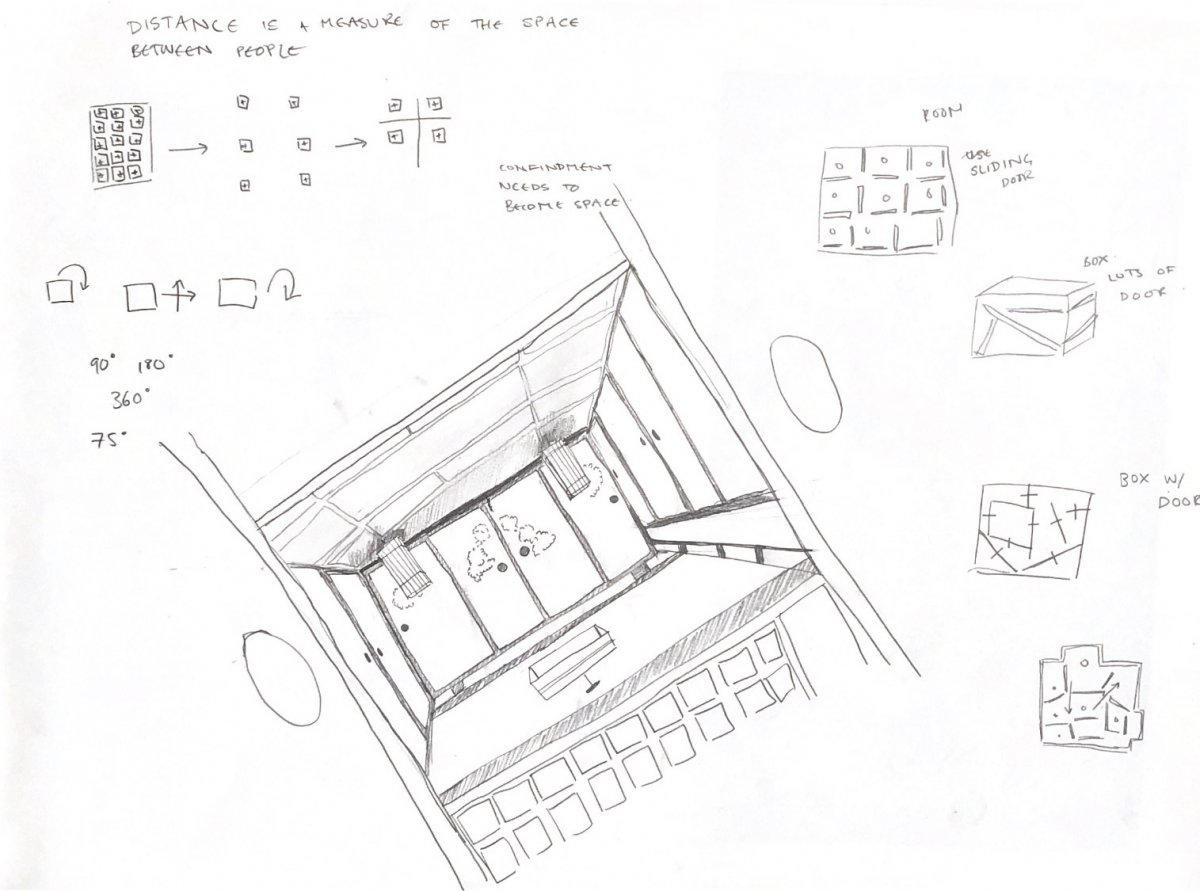 DISTANCE IS A MEASURE OF THE SPACE
BETWEEN PEOPLE
CONFINDMENT
NEEDS TO
BECOME SPACE
ROOM
USE
SLIDING
DOOR
BOX
LOTS OF
DOOR
90° 180°
360°
75°
BOX W/
DOOR